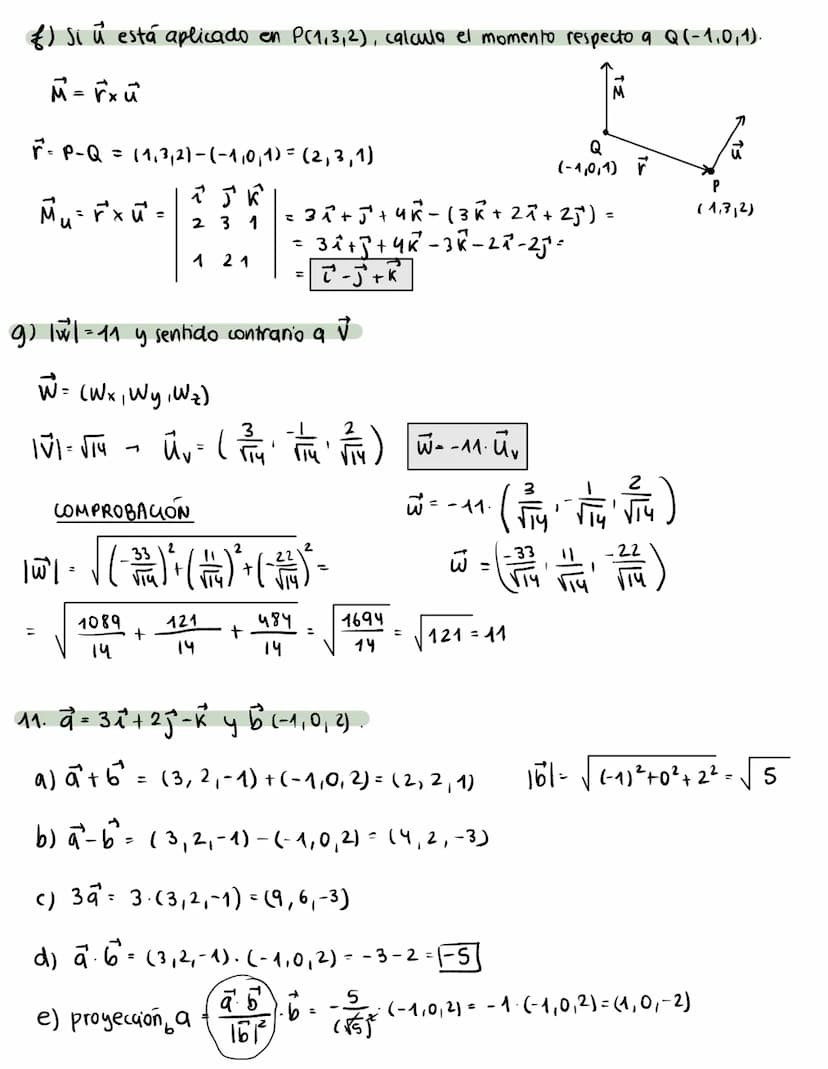 f) Si u⃗ está aplicado en P(1,3,2), calcula el momento respecto a Q(-1,0,1).
M⃗ = r⃗ x u⃗
M⃗
r⃗ = P-Q = (1,3,2)-(-1,0,1) = (2,3,1)
Q
(-1,0,1) r⃗
u⃗
P
(1,3,2)
M⃗u = r⃗ x u⃗ = | i⃗ j⃗ k⃗ | = 3i⃗ + j⃗ + 4k⃗ - (3k⃗ + 2i⃗ + 2j⃗) =
| 2 3 1 |
| 1 2 1 |
= 3i⃗ + j⃗ + 4k⃗ - 3k⃗ - 2i⃗ - 2j⃗ =
= i⃗ - j⃗ + k⃗
g) |w⃗| = 11 y sentido contrario a v⃗
w⃗ = (Wx, Wy, Wz)
|v⃗| = √14 → u⃗v = (3/√14, -1/√14, 2/√14) w⃗ = -11·u⃗v
COMPROBACIÓN w⃗ = -11·(3/√14, -1/√14, 2/√14)
|w⃗| = √((-33/√14)² + (11/√14)² + (-22/√14)²) = w⃗ = (-33/√14, 11/√14, -22/√14)
= √(1089/14 + 121/14 + 484/14) = √(1694/14) = √121 = 11
11. a⃗ = 3i⃗ + 2j⃗ - k⃗ y b⃗ (-1,0,2).
a) a⃗ + b⃗ = (3, 2,-1) + (-1,0,2) = (2, 2, 1) |b⃗| = √((-1)² + 0² + 2²) = √5
b) a⃗ - b⃗ = (3,2,-1) - (-1,0,2) = (4, 2, -3)
c) 3a⃗ = 3·(3,2,-1) = (9, 6,-3)
d) a⃗·b⃗ = (3,2,-1)·(-1,0,2) = -3-2 = -5
e) proyección_b a = (a⃗·b⃗/|b⃗|²)·b⃗ = -5/(√5)²·(-1,0,2) = -1·(-1,0,2) = (1,0,-2)